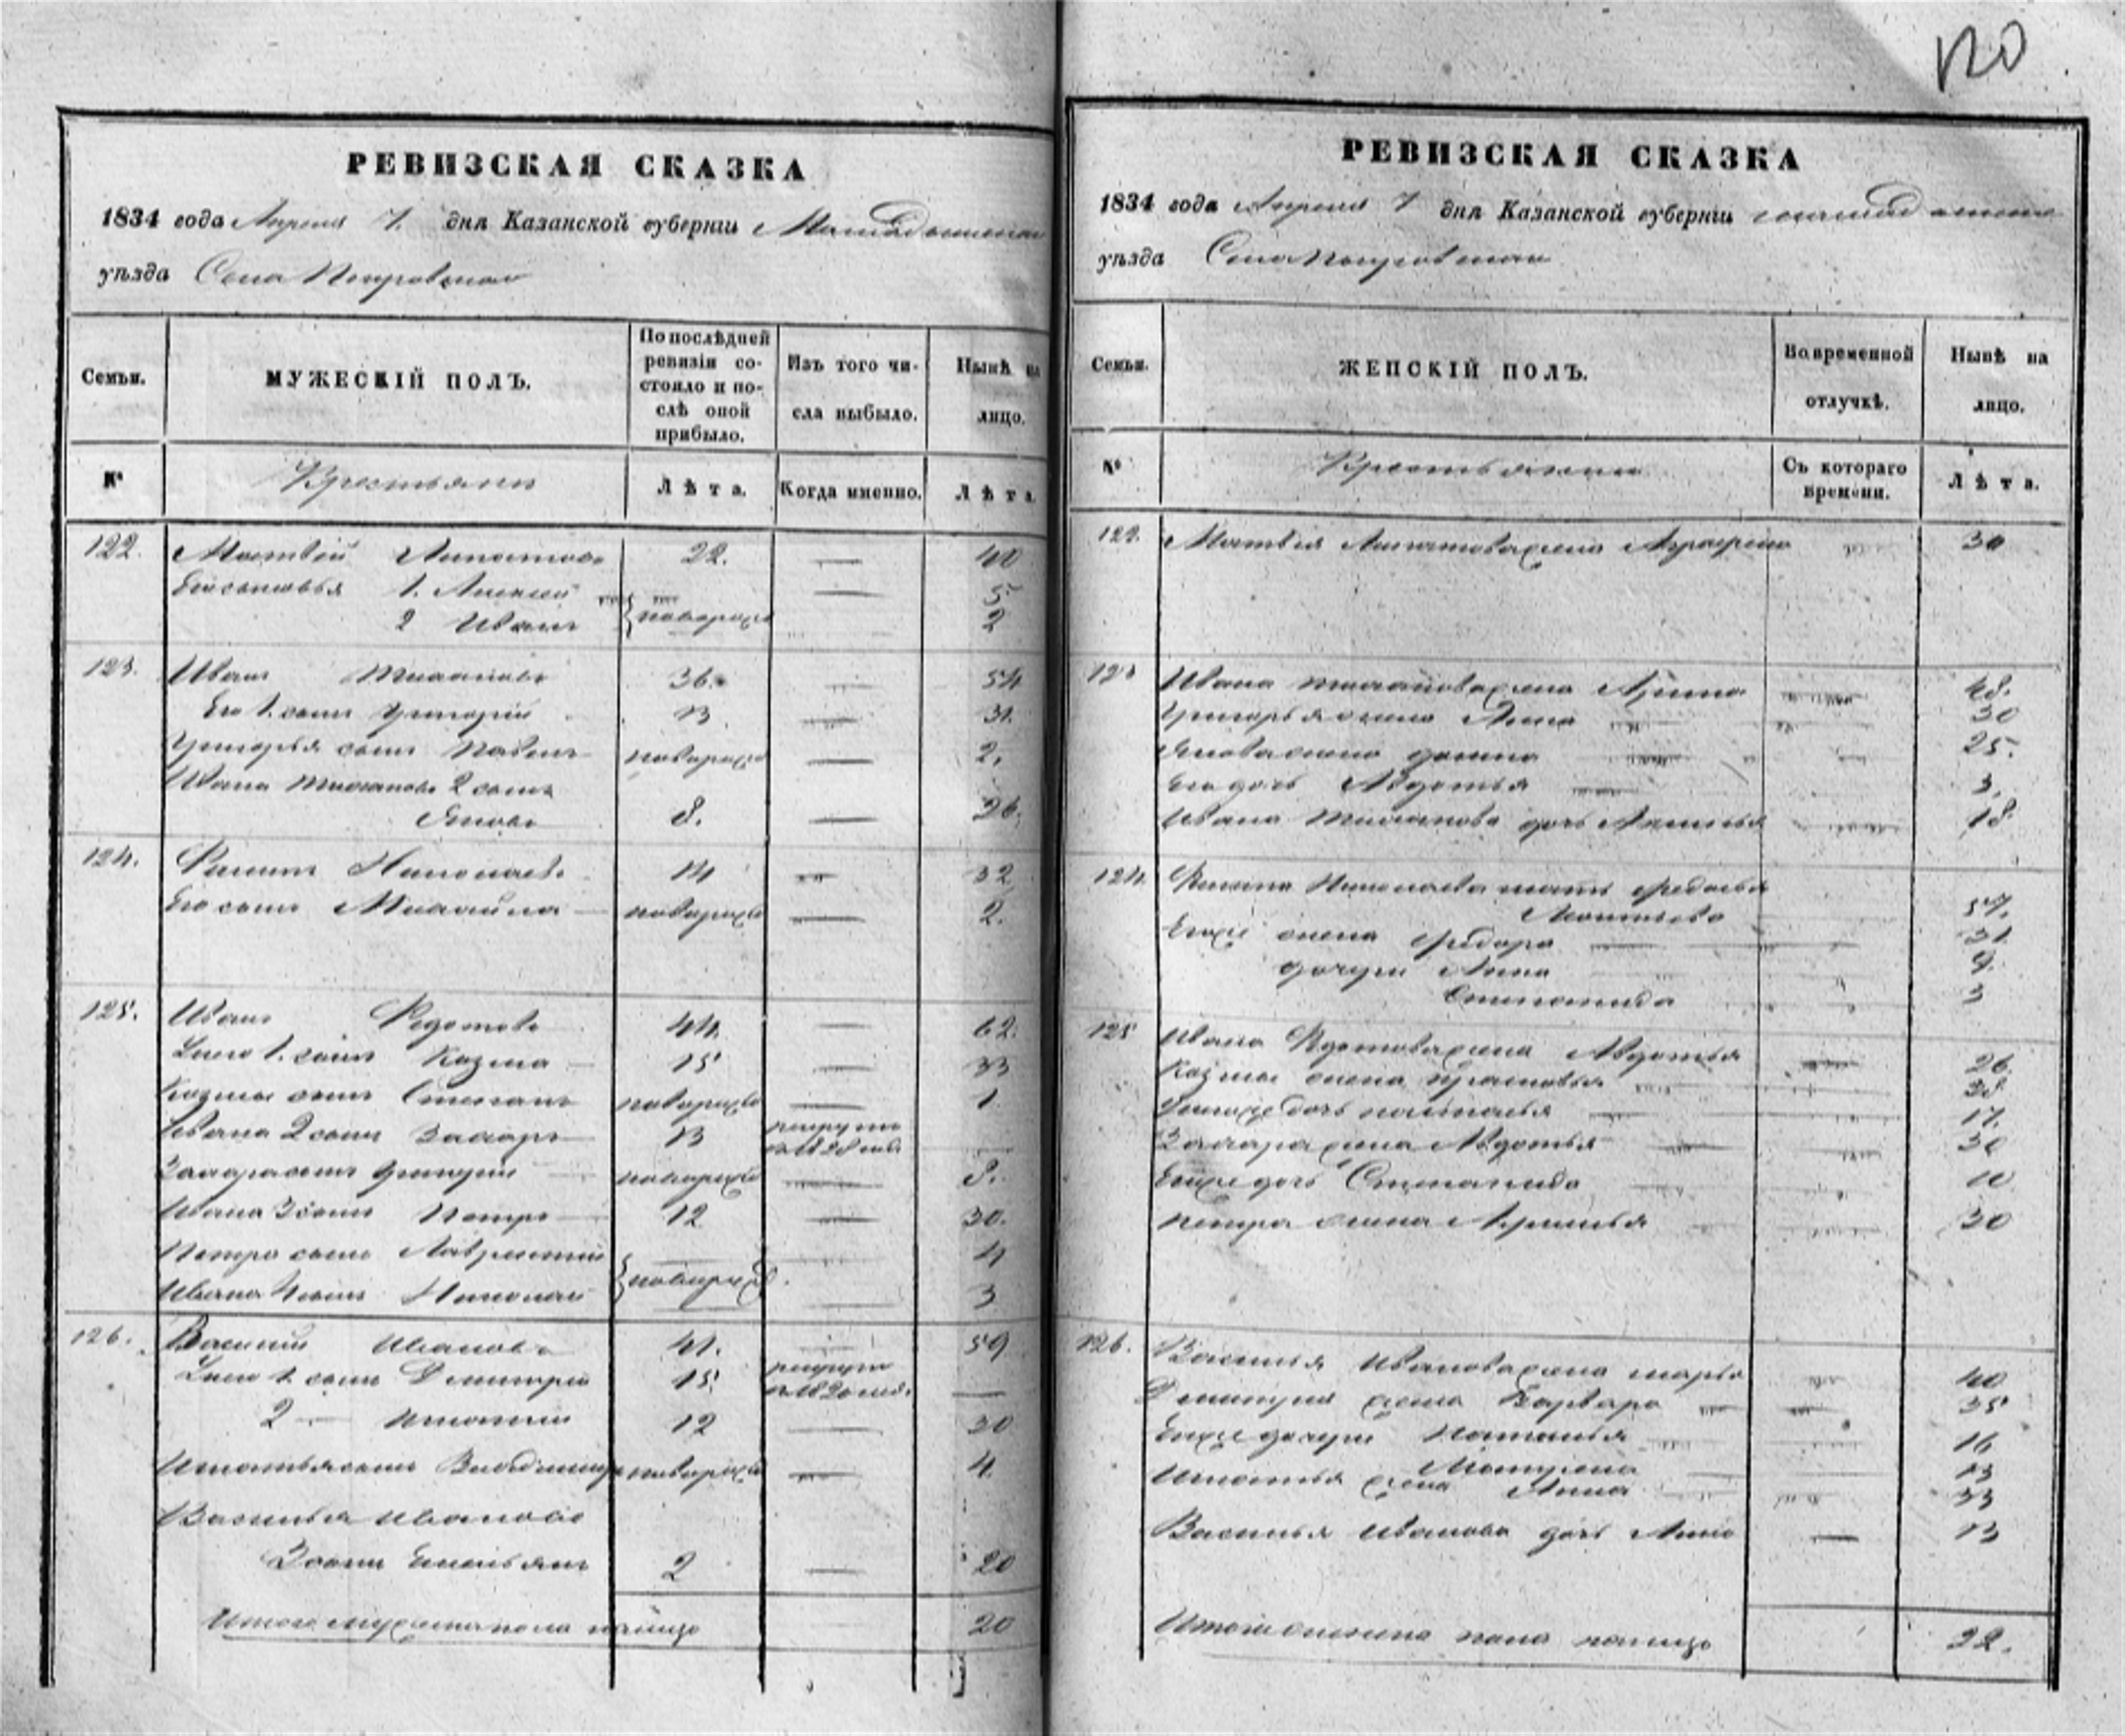 120
РЕВИЗСКАЯ СКАЗКА
1834 года Апреля 7. дня Казанской губерніи Мамадышскаго
уѣзда Села Покровскаго
Семьи.
МУЖЕСКІЙ ПОЛЪ.
По послѣдней
ревизіи со-
стояло и по-
слѣ оной
прибыло.
Изъ того чи-
сла выбыло.
Нынѣ на
лицо.
№
Крестьянъ
Лѣта.
Когда именно.
Лѣта
122. Матвей 22. — 40
Его сыновья 1. Алексей — 5
2 Иванъ новорожд 2
123. Иванъ 36. 54
Его 1. сынъ Григорій 13. 31.
Григорья сынъ Павелъ новорожд — 2.
Ивана 2 сынъ
Яковъ 8. — 26.
124. Филипъ Николаевъ 14 32
Его сынъ Михайла новорожд — 2.
125. Иванъ Федотовъ 44. — 62.
Его 1. сынъ Козма 15 — 33
Козмы сынъ Степанъ новорожд — 1
Ивана 2 сынъ Захаръ 13
Захара сынъ Григорій новорожд — 8.
Ивана 3 сынъ Петръ 12 — 30.
Петра сынъ Лаврентий — 4
Ивана 4 сынъ Николай новорожд — 3
126. Василий Ивановъ 41. — 59
Его 1. сынъ Дмитрий 15 —
2 — Игнатий 12 — 30
Игнатья сынъ Владимиръ новорожд — 4
Василья Иванова
3 сынъ Емельянъ 2 — 20
Итого мужеска пола на лицо 20
РЕВИЗСКАЯ СКАЗКА
1834 года Апреля 7 дня Казанской губерніи мамадышскаго
уѣзда Села Покровскаго
Семьи.
ЖЕНСКІЙ ПОЛЪ.
Во временной
отлучкѣ.
Нынѣ на
лицо.
№
Съ котораго
времени.
Лѣта.
122. Матвея жена 30
123 Ивана жена 48.
Григорья жена Анна 30
Якова жена 25.
Его дочь Авдотья 3.
Ивана дочь 18
124. Филипа Николаева мать Федосья
57.
Его же жена Федора — 31
дочери Анна 9.
Степанида 3
125 Ивана Федотова жена Авдотья 26.
Козмы жена Прасковья 38
Его же дочь — 17.
Захара жена Авдотья — 30
Его же дочь Степанида 10
Петра жена 30
126. Василья Иванова жена марья 40
Дмитрия жена Варвара 35
Его же дочери Наталья 16
Матрена 13
Игнатья жена Анна 33
Василья Иванова дочь Анна — 13
Итого женска пола на лицо 22.